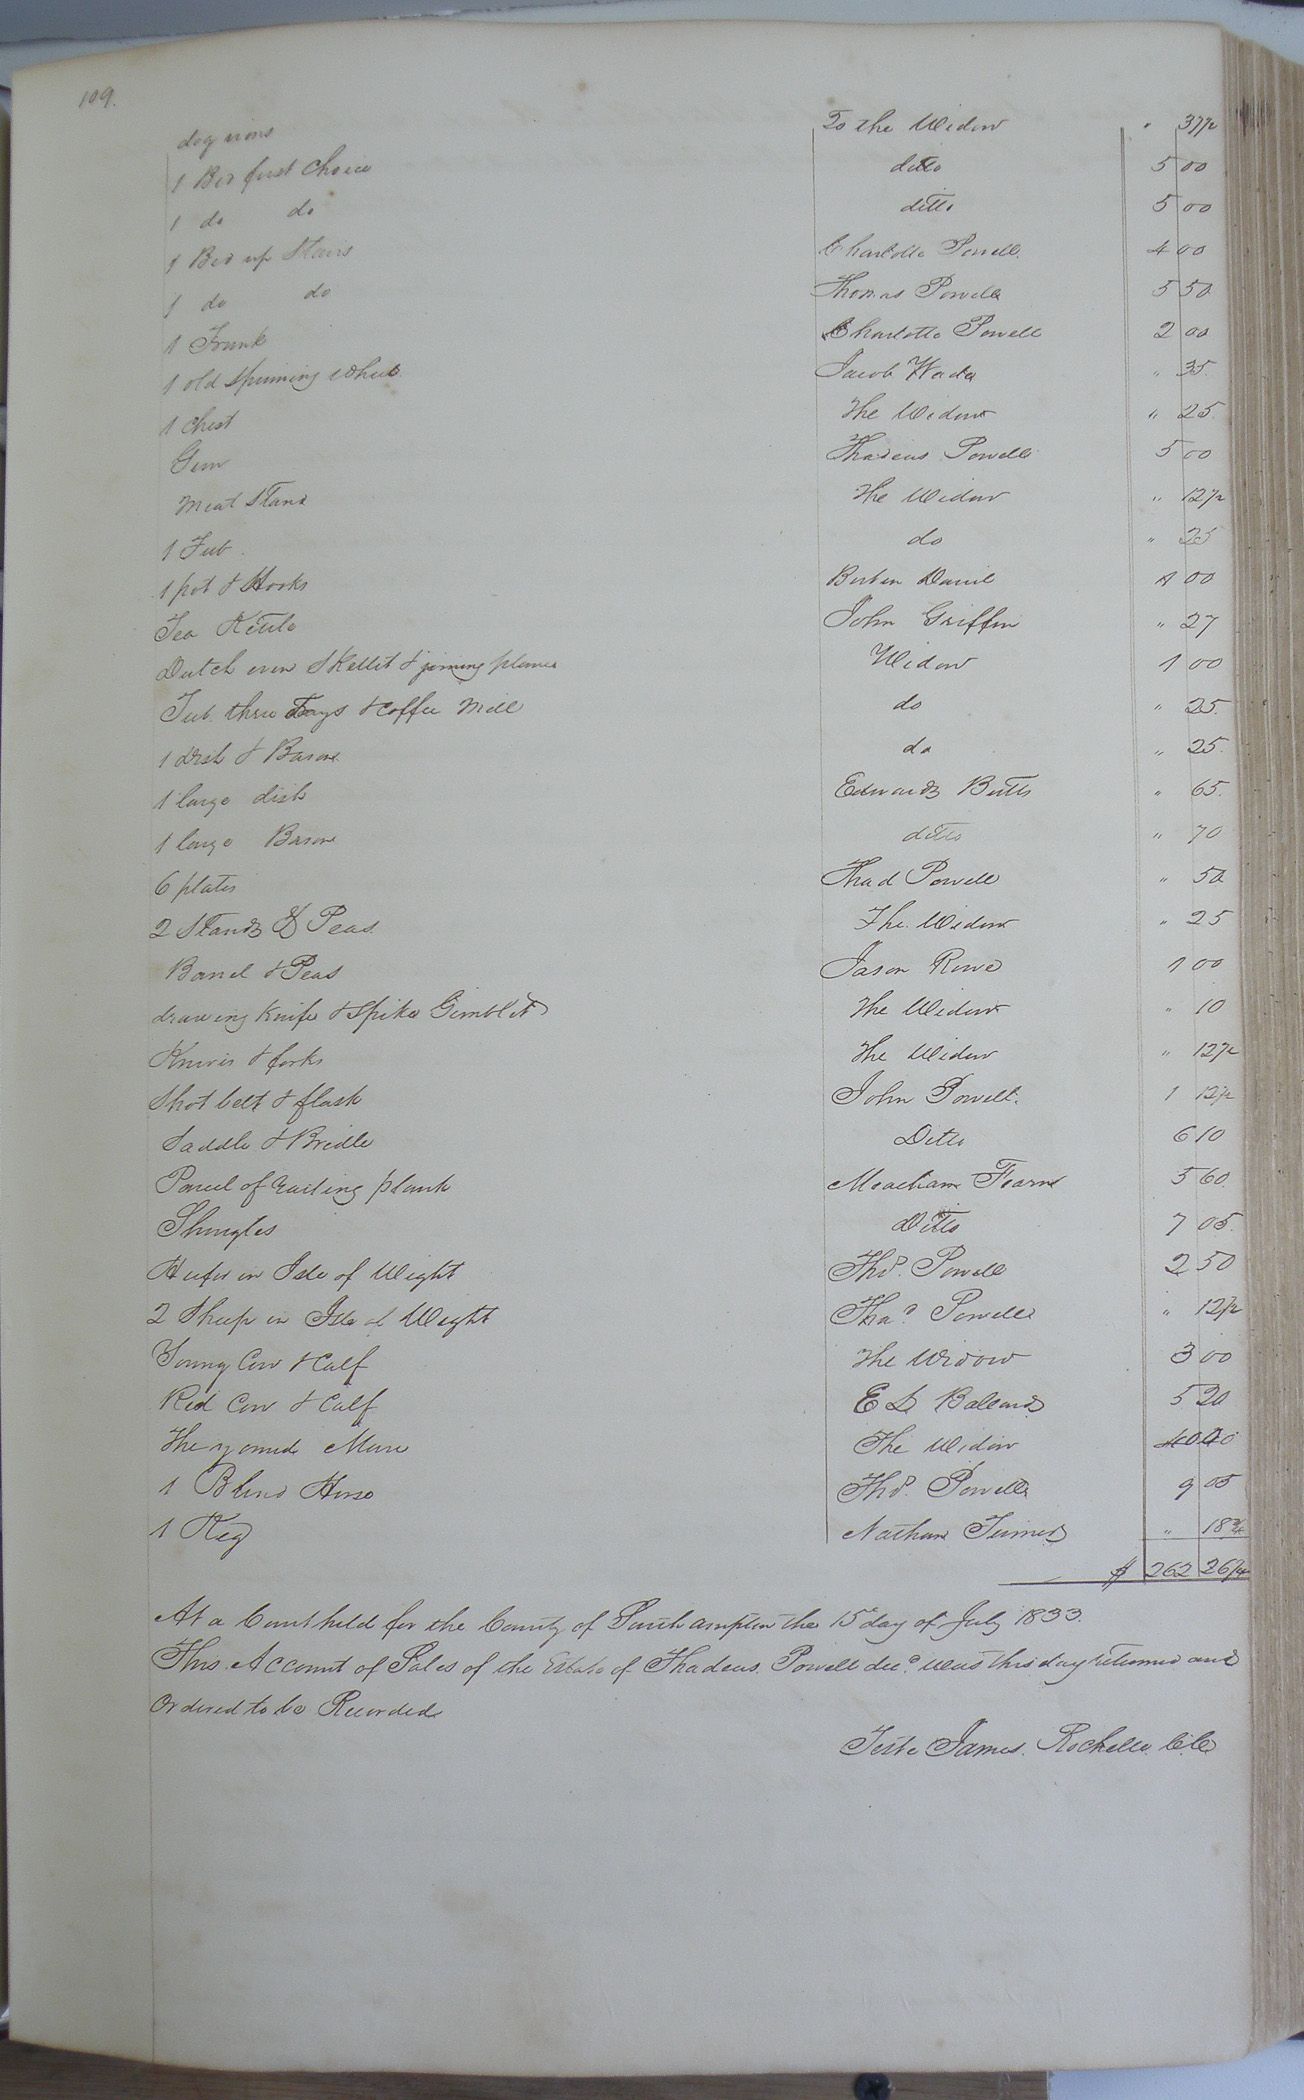 109.
dog irons To the Widow " 37½
1 Bed first Choice ditto 5 00
1 do do ditto 5 00
1 Bed up Stairs Charlotte Powell. 4 00
1 do do Thomas Powell 5 50
1 Trunk Charlotte Powell 2 00
1 old Spinning Wheel Jacob Wade " 35.
1 Chest The Widow " 25.
Gun Thadeus Powell 5 00
Meat Stand The Widow " 12½
1 Tub do " 25
1 pot & Hooks Daniel 1 00
Tea Kettle John Griffin " 27
Dutch oven Skellet & joining planes Widow 1 00
Tub. three Trays & Coffee Mill do " 25.
1 dish & Bason do " 25.
1 large dish Edwards Butts " 65.
1 large Bason ditto " 70
6 plates Thad Powell " 50
2 Stands & Peas. The Widow " 25
Barrel & Peas Jason Rowe 1 00
drawing Knife & Spike Gimblet The Widow " 10
Knives & forks The Widow " 12½
Shot belt & flask John Powell. 1 12½
Saddle & Bridle Ditto 6 10
Parcel of railing plank Meacham Fearn 5 60.
Shingles Ditto 7 05.
Heifer in Isle of Wight Thos. Powell 2 50
2 Sheep in Isle of Wight Thad. Powell " 12½
Young Cow & Calf The Widow 3 00
Red Cow & Calf E D Ballard 5 20
The Mare The Widow 40 00
1 Blind Horse Thos. Powell 9 05
1 Keg Nathan Turner " 18¾
$ 262 26¼
At a Court held for the County of Southampton the 15th day of July 1833.
This Account of Sales of the Estate of Thadeus Powell decd. was this day returned and
Ordered to be Recorded
Teste James Rochelle C.C.